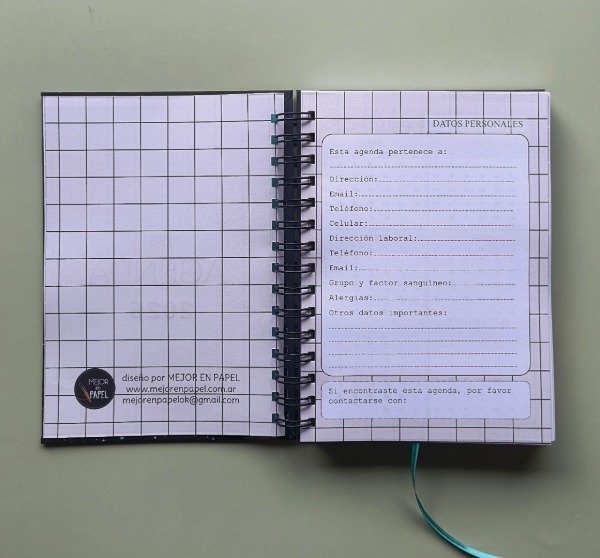 MEJOR
en
PAPEL
diseño por MEJOR EN PAPEL
www.mejorenpapel.com.ar
mejorenpapelok@gmail.com
DATOS PERSONALES
Esta agenda pertenece a:
Dirección:
Email:
Teléfono:
Celular:
Dirección laboral:
Teléfono:
Email:
Grupo y factor sanguíneo:
Alergias:
Otros datos importantes:
Si encontraste esta agenda, por favor
contactarse con: